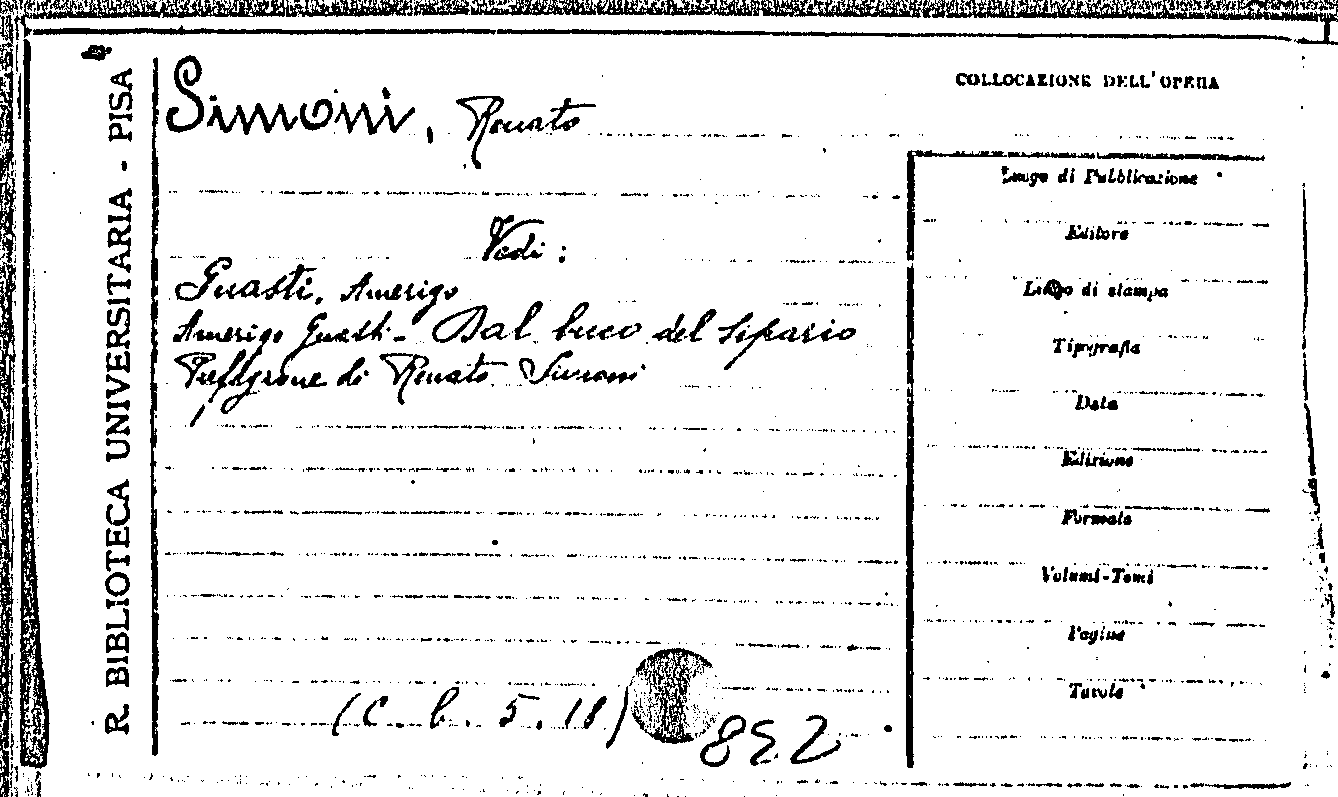 R. BIBLIOTECA UNIVERSITARIA - PISA
Simoni, Renato
Vedi:
Guasti, Amerigo
Amerigo Guasti - Dal buco del sipario
Prefazione di Renato Simoni
(C. b. 5. 18)
852
COLLOCAZIONE DELL'OPERA
Luogo di Pubblicazione
Editore
Luogo di stampa
Tipografia
Data
Edizione
Formato
Volumi-Tomi
Pagine
Tavole